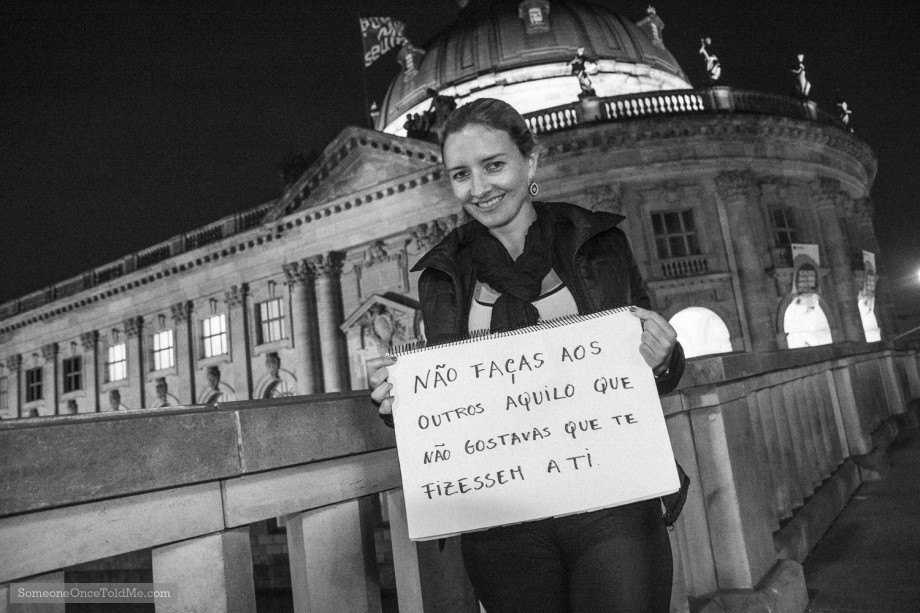 NÃO FAÇAS AOS
OUTROS AQUILO QUE
NÃO GOSTAVAS QUE TE
FIZESSEM A TI.
SomeoneOnceToldMe.com